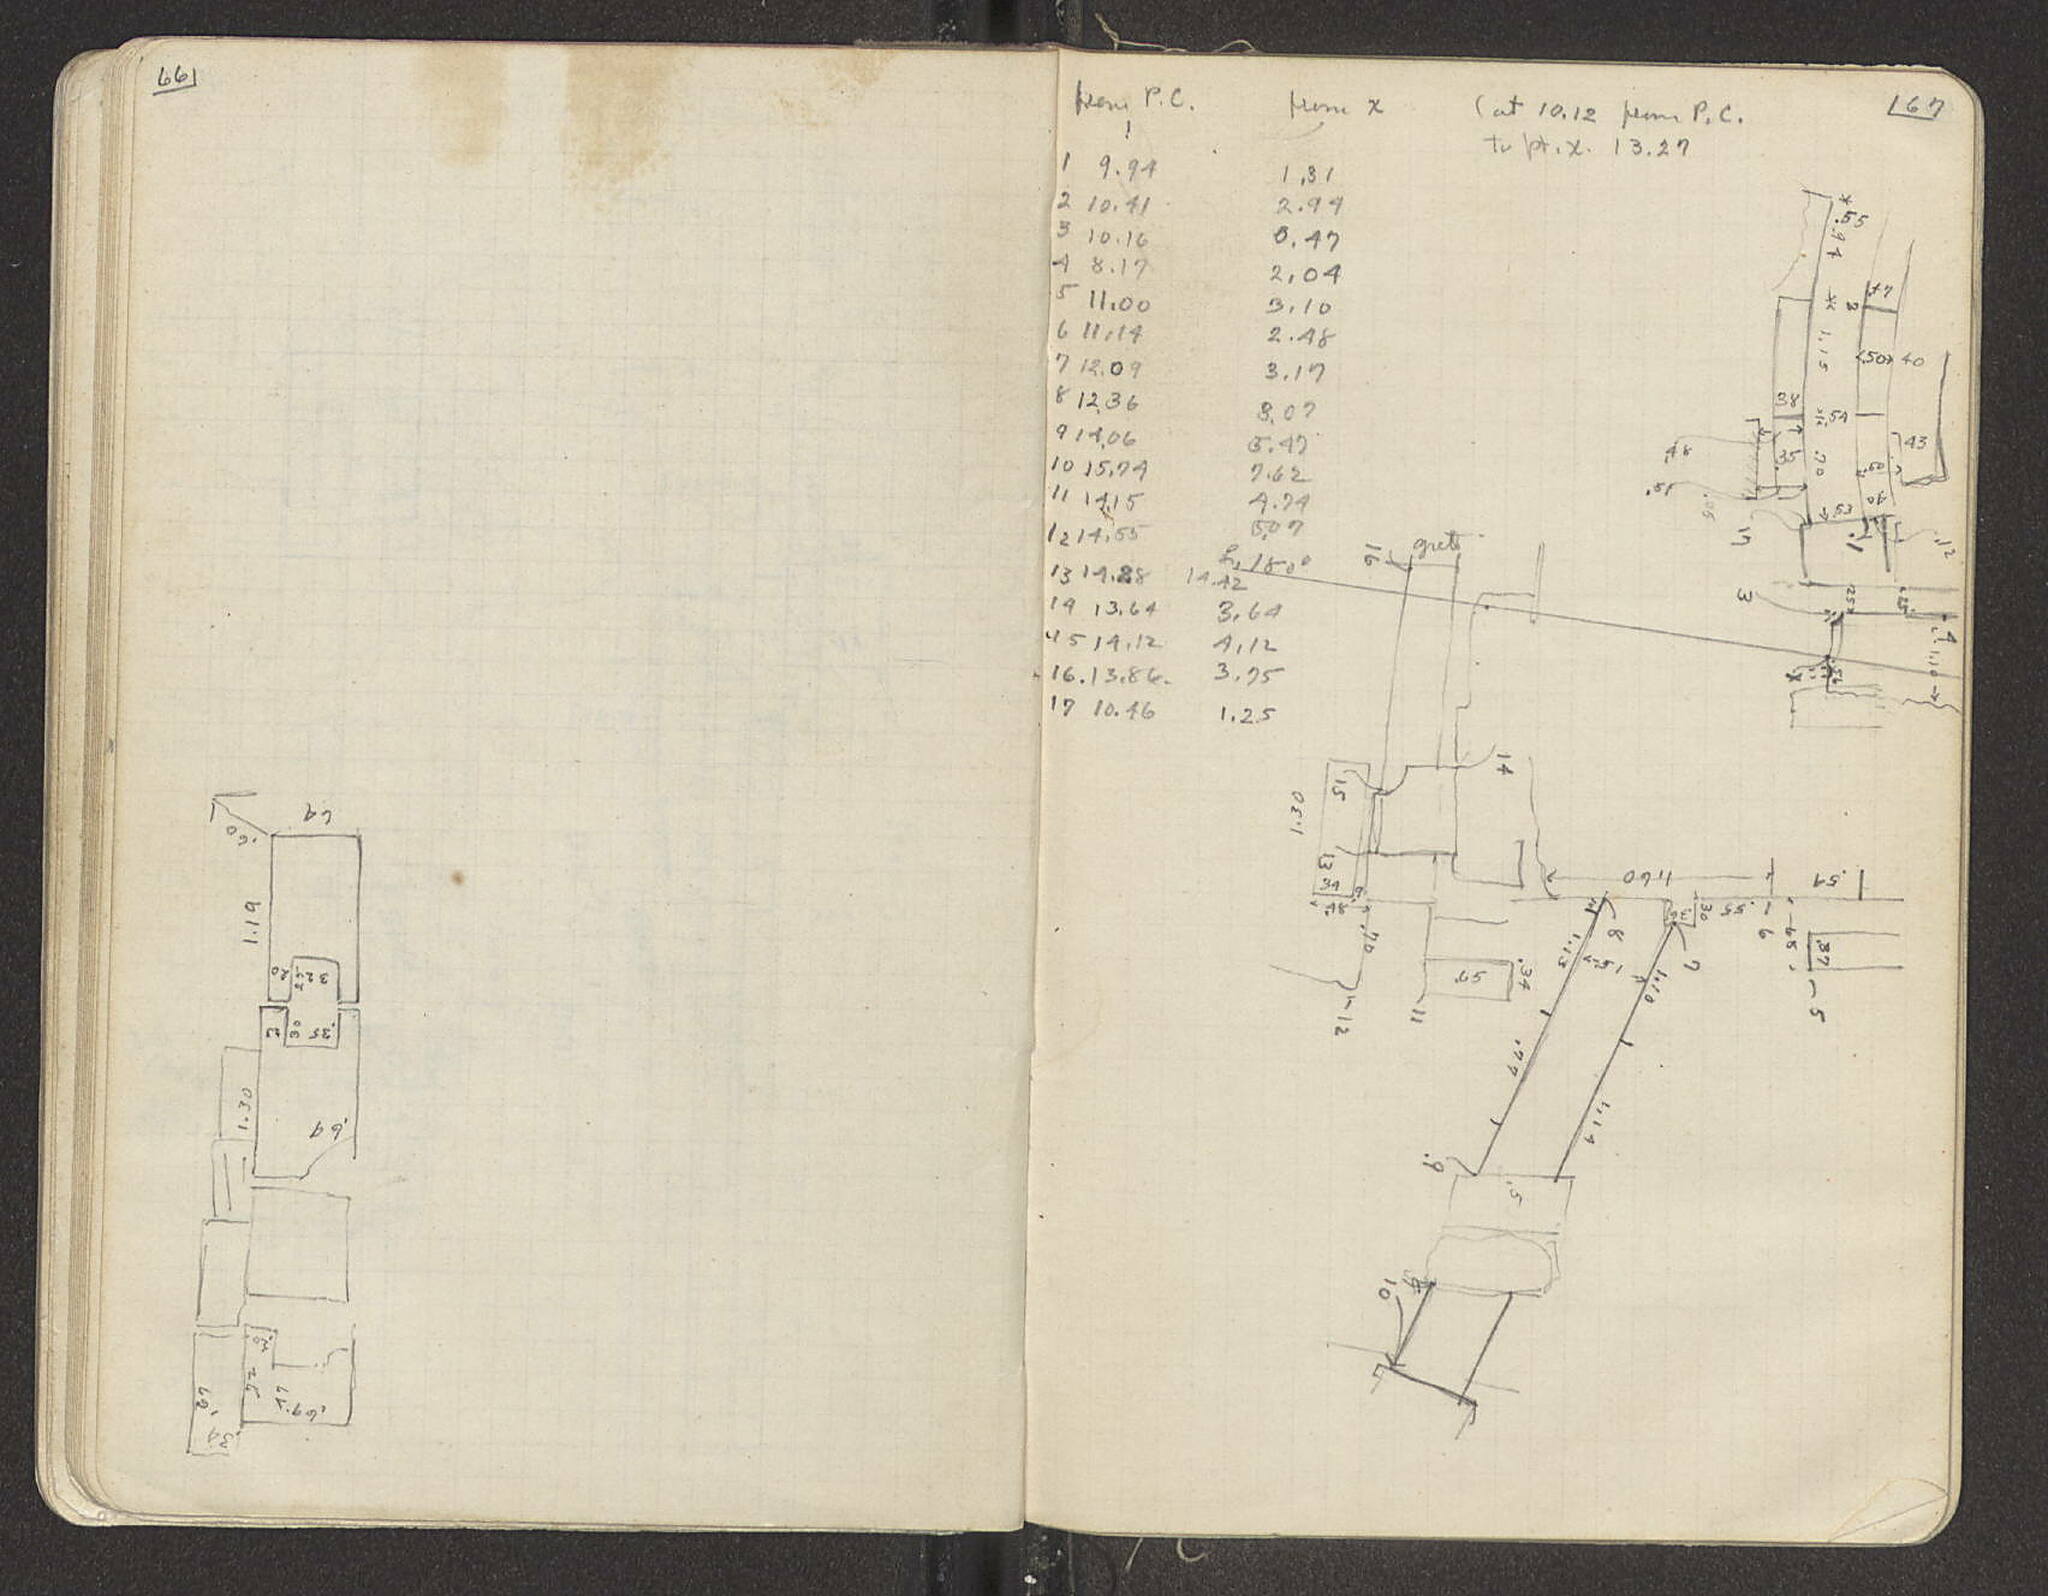 66
67
from P.C.
from x
(at 10.12 from P.C.
to pt. x. 13.27
1 9.94 1.31
2 10.41 2.94
3 10.16 0.47
4 8.17 2.04
5 11.00 3.10
6 11.14 2.48
7 12.09 3.17
8 12.36 3.07
9 14.06 5.47
10 15.74 7.62
11 14.15 4.74
12 14.55 5.07
13 14.28 14.42
14 13.64 3.64
15 14.12 4.12
16. 13.86. 3.75
17 10.46 1.25
.55
.47
2
1.15
.50
40
38
.54
43
.48
35
.70
.51
.05
.53
17
1
.12
3
.25
4
1.10
x
16
14
15
1.30
13
34
.48
.70
12
11
.65
.34
1.60
.54
.30
.55
6
.65
.37
5
8
7
1.13
1.10
.77
1.14
9
.5
10
.64
.60
1.19
.20
.32
.30
.35
1.30
.64
.62